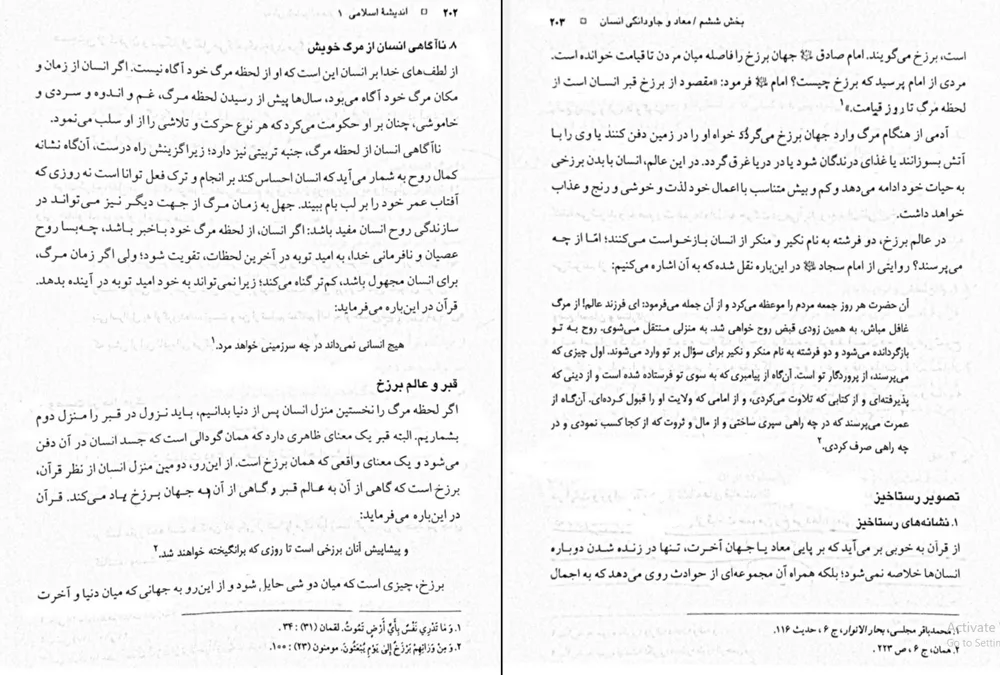 ۲۰۲ □ اندیشهٔ اسلامی ۱
۸. ناآگاهی انسان از مرگ خویش
از لطف‌های خدا بر انسان این است که او از لحظه مرگ خود آگاه نیست. اگر انسان از زمان و
مکان مرگ خود آگاه می‌بود، سال‌ها پیش از رسیدن لحظه مرگ، غم و اندوه و سردی و
خاموشی، چنان بر او حکومت می‌کرد که هر نوع حرکت و تلاشی را از او سلب می‌نمود.
ناآگاهی انسان از لحظه مرگ، جنبه تربیتی نیز دارد؛ زیرا گزینش راه درست، آن‌گاه نشانه
کمال روح به شمار می‌آید که انسان احساس کند بر انجام و ترک فعل توانا است نه روزی که
آفتاب عمر خود را بر لب بام ببیند. جهل به زمان مرگ از جهت دیگر نیز می‌تواند در
سازندگی روح انسان مفید باشد: اگر انسان، از لحظه مرگ خود باخبر باشد، چه‌بسا روح
عصیان و نافرمانی خدا، به امید توبه در آخرین لحظات، تقویت شود؛ ولی اگر زمان مرگ،
برای انسان مجهول باشد، کم‌تر گناه می‌کند؛ زیرا نمی‌تواند به خود امید توبه در آینده بدهد.
قرآن در این‌باره می‌فرماید:
هیچ انسانی نمی‌داند در چه سرزمینی خواهد مرد.۱
قبر و عالم برزخ
اگر لحظه مرگ را نخستین منزل انسان پس از دنیا بدانیم، باید نزول در قبر را منزل دوم
بشماریم. البته قبر یک معنای ظاهری دارد که همان گودالی است که جسد انسان در آن دفن
می‌شود و یک معنای واقعی که همان برزخ است. از این‌رو، دومین منزل انسان از نظر قرآن،
برزخ است که گاهی از آن به عالم قبر و گاهی از آن به جهان برزخ یاد می‌کند. قرآن
در این‌باره می‌فرماید:
و پیشاپیش آنان برزخی است تا روزی که برانگیخته خواهند شد.۲
برزخ، چیزی است که میان دو شی حایل شود و از این‌رو به جهانی که میان دنیا و آخرت
۱. وَ مَا تَدْرِي نَفْسٌ بِأَيِّ أَرْضٍ تَمُوتُ. لقمان (۳۱) : ۳۴.
۲. وَ مِنْ وَرَائِهِمْ بَرْزَخٌ إِلَى يَوْمِ يُبْعَثُونَ. مومنون (۲۳) : ۱۰۰.
بخش ششم / معاد و جاودانگی انسان □ ۲۰۳
است، برزخ می‌گویند. امام صادق ﷷ جهان برزخ را فاصله میان مردن تا قیامت خوانده است.
مردی از امام پرسید که برزخ چیست؟ امام فرمود: «مقصود از برزخ قبر انسان است از
لحظه مرگ تا روز قیامت.»۱
آدمی از هنگام مرگ وارد جهان برزخ می‌گردد خواه او را در زمین دفن کنند یا وی را با
آتش بسوزانند یا غذای درندگان شود یا در دریا غرق گردد. در این عالم، انسان با بدن برزخی
به حیات خود ادامه می‌دهد و کم و بیش متناسب با اعمال خود لذت و خوشی و رنج و عذاب
خواهد داشت.
در عالم برزخ، دو فرشته به نام نکیر و منکر از انسان بازخواست می‌کنند؛ امّا از چه
می‌پرسند؟ روایتی از امام سجاد در این‌باره نقل شده که به آن اشاره می‌کنیم:
آن حضرت هر روز جمعه مردم را موعظه می‌کرد و از آن جمله می‌فرمود: ای فرزند عالم! از مرگ
غافل مباش. به همین زودی قبض روح خواهی شد. به منزلی منتقل می‌شوی. روح به تو
بازگردانده می‌شود و دو فرشته به نام منکر و نکیر برای سؤال بر تو وارد می‌شوند. اول چیزی که
می‌پرسند، از پروردگار تو است. آن‌گاه از پیامبری که به سوی تو فرستاده شده است و از دینی که
پذیرفته‌ای و از کتابی که تلاوت می‌کردی، و از امامی که ولایت او را قبول کرده‌ای. آن‌گاه از
عمرت می‌پرسند که در چه راهی سپری ساختی و از مال و ثروت که از کجا کسب نمودی و در
چه راهی صرف کردی.۲
تصویر رستاخیز
۱. نشانه‌های رستاخیز
از قرآن به خوبی بر می‌آید که بر پایی معاد یا جهان آخرت، تنها در زنده شدن دوباره
انسان‌ها خلاصه نمی‌شود؛ بلکه همراه آن مجموعه‌ای از حوادث روی می‌دهد که به اجمال
۱. محمدباقر مجلسی، بحار الانوار، ج ۶، حدیث ۱۱۶.
۲. همان، ج ۶، ص ۲۲۳.
Activate
Go to Settin